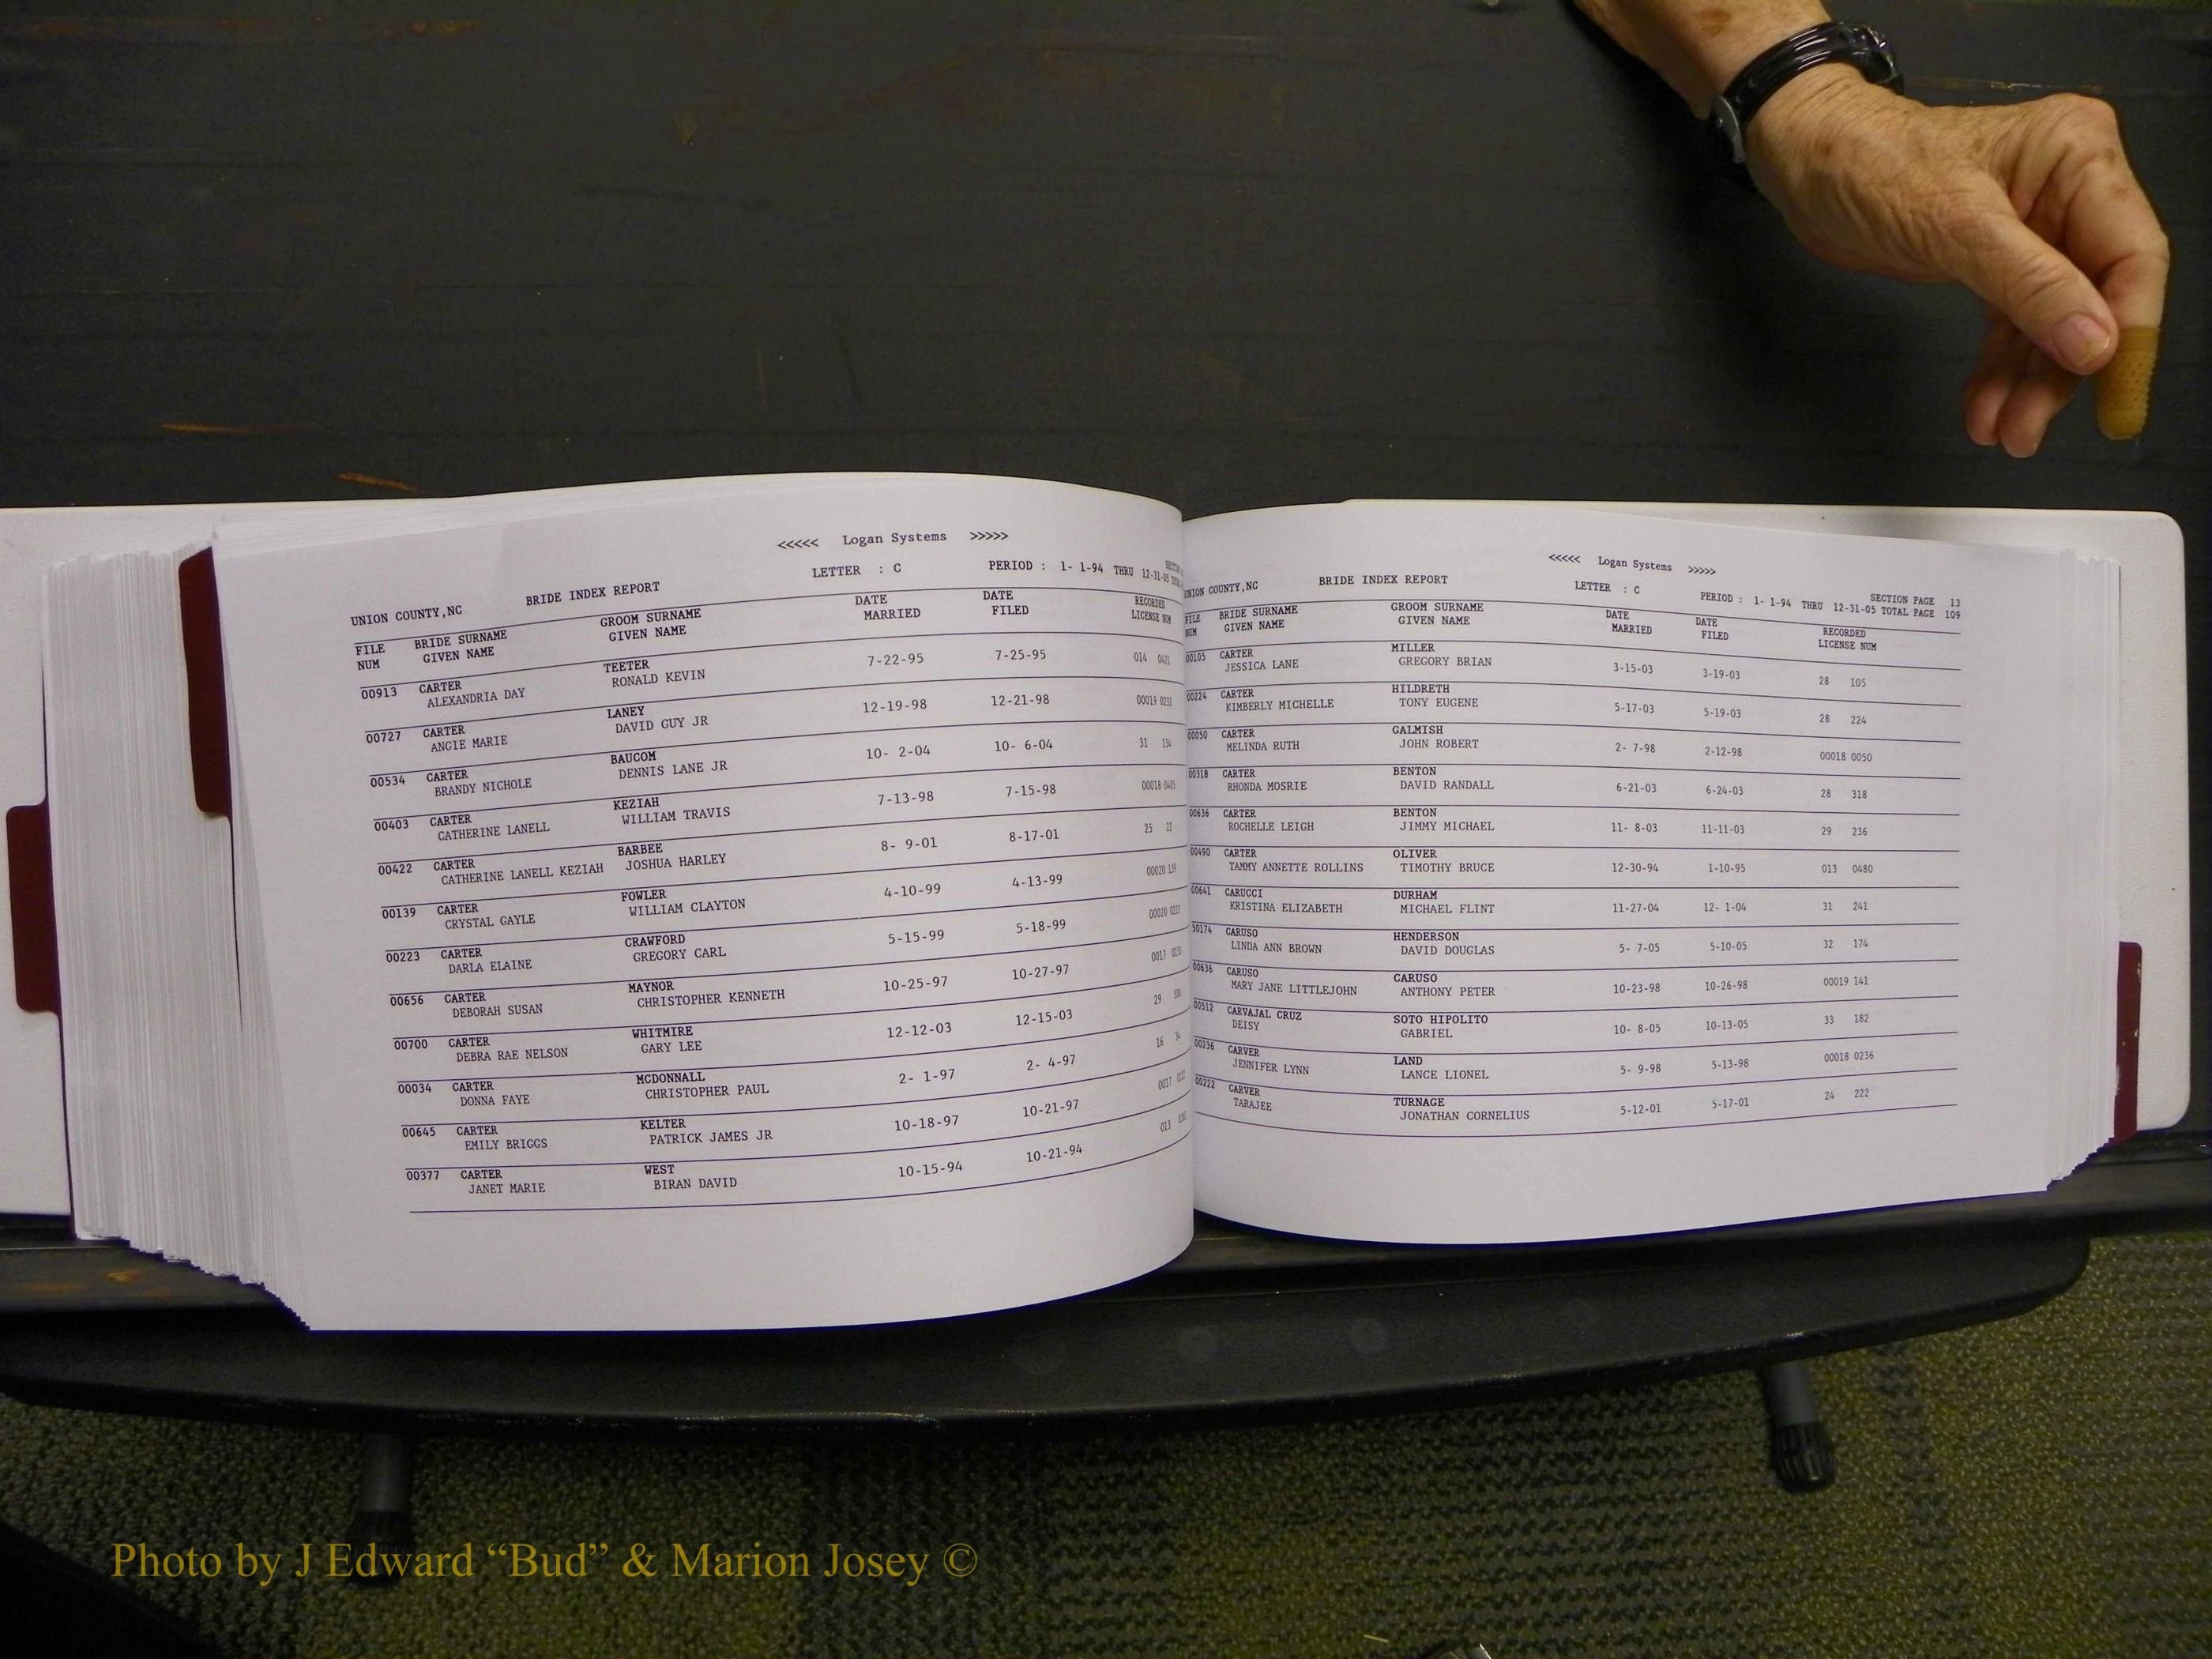 <<<<< Logan Systems >>>>>
UNION COUNTY,NC BRIDE INDEX REPORT LETTER : C PERIOD : 1- 1-94 THRU 12-31-05
FILE BRIDE SURNAME GROOM SURNAME DATE DATE RECORDED
NUM GIVEN NAME GIVEN NAME MARRIED FILED LICENSE NUM
00913 CARTER TEETER 7-22-95 7-25-95 014 0421
ALEXANDRIA DAY RONALD KEVIN
00727 CARTER LANEY 12-19-98 12-21-98 00019 0232
ANGIE MARIE DAVID GUY JR
00534 CARTER BAUCOM 10- 2-04 10- 6-04 31
BRANDY NICHOLE DENNIS LANE JR
00403 CARTER KEZIAH 7-13-98 7-15-98 00018
CATHERINE LANELL WILLIAM TRAVIS
00422 CARTER BARBEE 8- 9-01 8-17-01 25
CATHERINE LANELL KEZIAH JOSHUA HARLEY
00139 CARTER FOWLER 4-10-99 4-13-99 00020 139
CRYSTAL GAYLE WILLIAM CLAYTON
00223 CARTER CRAWFORD 5-15-99 5-18-99 00020
DARLA ELAINE GREGORY CARL
00656 CARTER MAYNOR 10-25-97 10-27-97 0017
DEBORAH SUSAN CHRISTOPHER KENNETH
00700 CARTER WHITMIRE 12-12-03 12-15-03 29
DEBRA RAE NELSON GARY LEE
00034 CARTER MCDONNALL 2- 1-97 2- 4-97 16
DONNA FAYE CHRISTOPHER PAUL
00645 CARTER KELTER 10-18-97 10-21-97 0017
EMILY BRIGGS PATRICK JAMES JR
00377 CARTER WEST 10-15-94 10-21-94 013
JANET MARIE BIRAN DAVID
<<<<< Logan Systems >>>>>
UNION COUNTY,NC BRIDE INDEX REPORT LETTER : C SECTION PAGE 13
PERIOD : 1- 1-94 THRU 12-31-05 TOTAL PAGE 109
FILE BRIDE SURNAME GROOM SURNAME DATE DATE RECORDED
NUM GIVEN NAME GIVEN NAME MARRIED FILED LICENSE NUM
00105 CARTER MILLER 3-15-03 3-19-03 28 105
JESSICA LANE GREGORY BRIAN
00224 CARTER HILDRETH 5-17-03 5-19-03 28 224
KIMBERLY MICHELLE TONY EUGENE
00050 CARTER GALMISH 2- 7-98 2-12-98 00018 0050
MELINDA RUTH JOHN ROBERT
00318 CARTER BENTON 6-21-03 6-24-03 28 318
RHONDA MOSRIE DAVID RANDALL
00636 CARTER BENTON 11- 8-03 11-11-03 29 236
ROCHELLE LEIGH JIMMY MICHAEL
00490 CARTER OLIVER 12-30-94 1-10-95 013 0480
TAMMY ANNETTE ROLLINS TIMOTHY BRUCE
00641 CARUCCI DURHAM 11-27-04 12- 1-04 31 241
KRISTINA ELIZABETH MICHAEL FLINT
50174 CARUSO HENDERSON 5- 7-05 5-10-05 32 174
LINDA ANN BROWN DAVID DOUGLAS
00636 CARUSO CARUSO 10-23-98 10-26-98 00019 141
MARY JANE LITTLEJOHN ANTHONY PETER
00512 CARVAJAL CRUZ SOTO HIPOLITO 10- 8-05 10-13-05 33 182
DEISY GABRIEL
00236 CARVER LAND 5- 9-98 5-13-98 00018 0236
JENNIFER LYNN LANCE LIONEL
00222 CARVER TURNAGE 5-12-01 5-17-01 24 222
TARAJEE JONATHAN CORNELIUS
Photo by J Edward “Bud” & Marion Josey ©